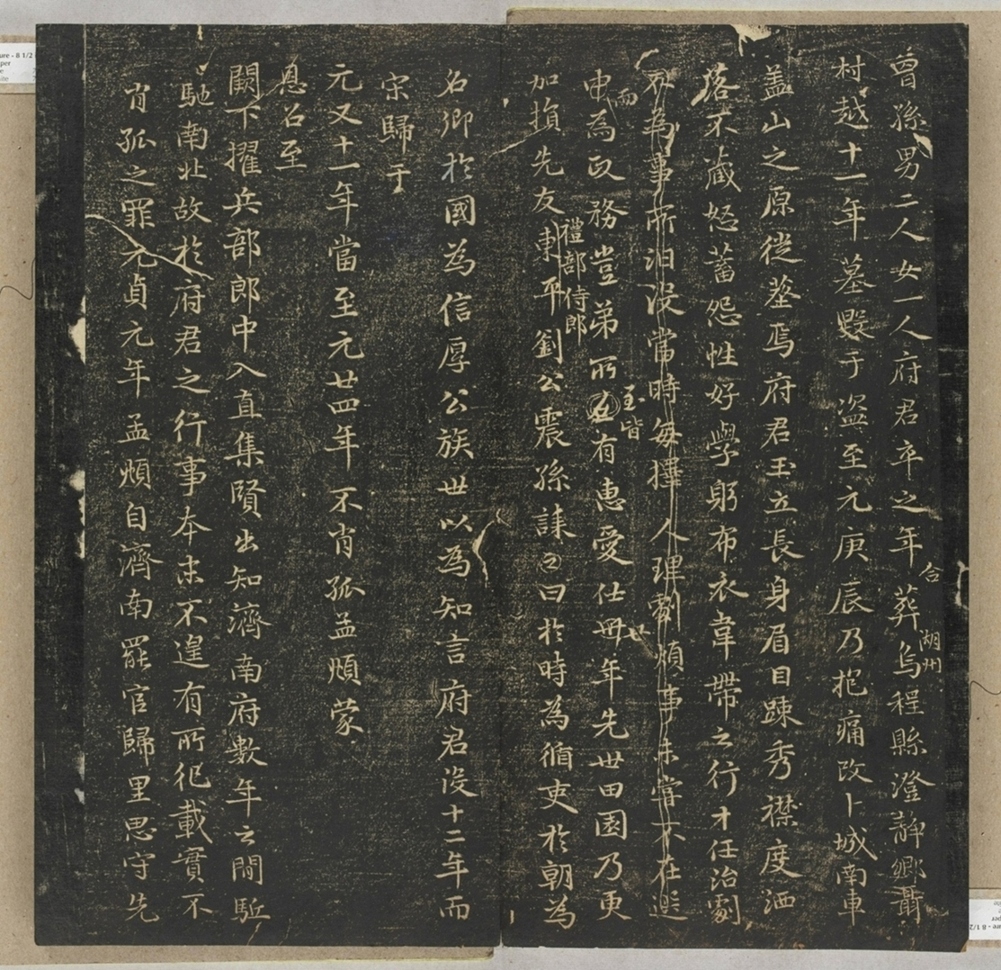 曾孫男二人女一人府君卒之年葬烏程縣澄靜鄉聶
合湖州
村越十一年墓毀于盗至元庚辰乃抱痛改卜城南車
盖山之原從葬焉府君玉立長身眉目踈秀襟度洒
落不蔵怒蓄怨性好學躬布衣韋帶之行才任治劇
不為事所汩没當時每擇人理劇煩事未嘗不在選
中為政務豈弟所有惠愛仕卌年先世田園乃更
而
至皆
世
加損先友劉公震孫誄曰於時為循吏於朝為
禮部侍郎
名卿於國為信厚公族世以為知言府君没十二年而
宋歸于
元又十一年當至元廿四年不肖孤孟頫蒙
恩召至
闕下擢兵部郎中入直集賢出知濟南府數年之間駈
馳南北故於府君之行事本末不遑有所紀載實不
肖孤之罪元貞元年孟頫自濟南罷官歸里思守先